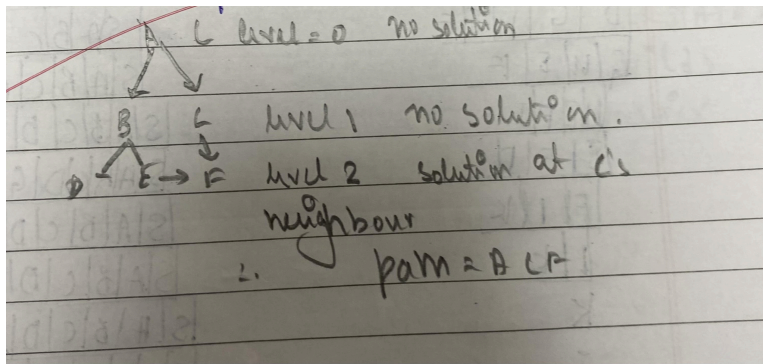 A L level = 0 no solution
B C level 1 no solution.
D E → F level 2 solution at C's
neighbour
∴ path = A C F